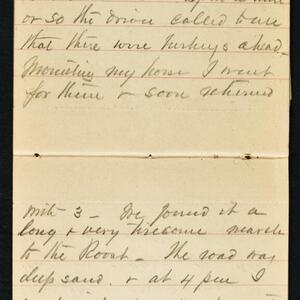 or so the driver called back
that there were turkeys ahead -
Mounting my horse I went
for them & soon returned
with 3 - We found it a
long & very tiresome march
to the Roost - The road was
deep sand. & at 4 pm I